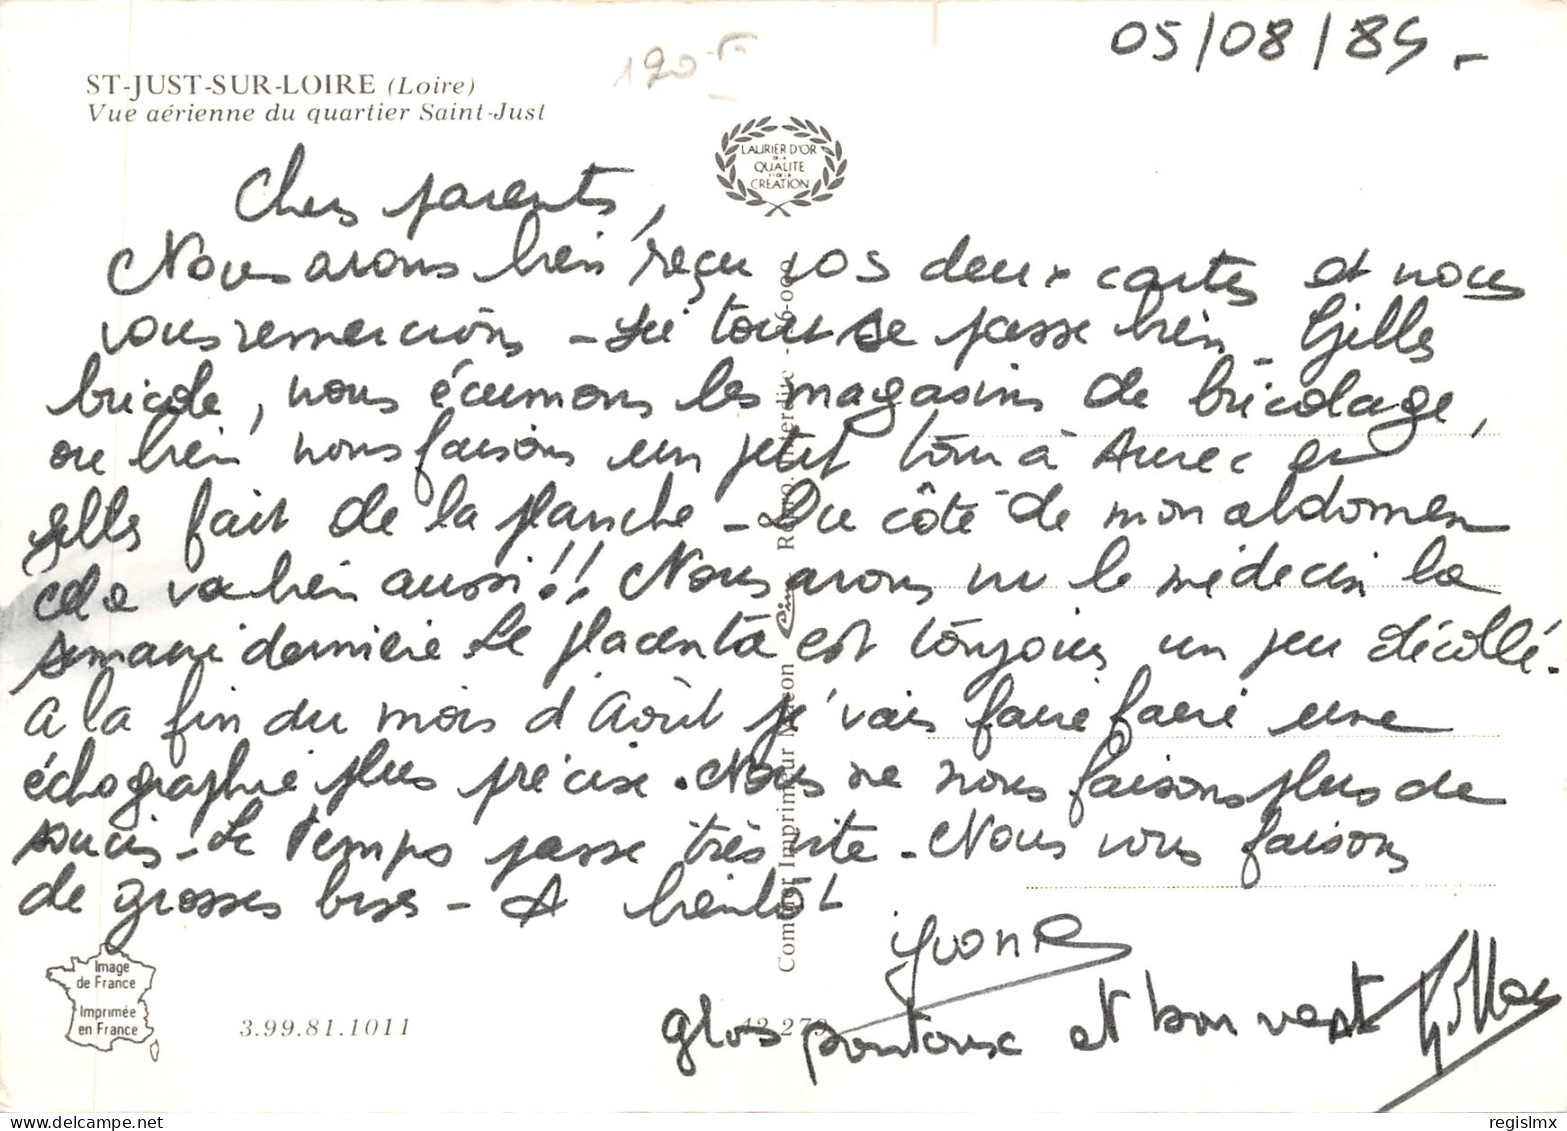 05/08/85 -
190
ST-JUST-SUR-LOIRE (Loire)
Vue aérienne du quartier Saint-Just
LAURIER D'OR
DE LA
QUALITE
ET DE LA
CREATION
Chers parents,
Nous avons bien reçu vos deux cartes et nous
vous remercions - Ici tout se passe bien - Gilles
bricole, nous écumons les magasins de bricolage,
ou bien nous faisons un petit tour à Aurec et
Gilles fait de la planche - Du côté de mon abdomen
cela va bien aussi!! Nous avons vu le médecin la
semaine dernière Le placenta est toujours un peu décollé.
A la fin du mois d'Août je vais faire faire une
échographie plus précise. Nous ne nous faisons plus de
soucis - Le temps passe très vite - Nous vous faisons
de grosses bises - A bientôt
Yvone
gros poutoux et bon vent Gilles
Combier Imprimeur Mâcon Cim Repro. interdite - 26-000
Image
de France
Imprimée
en France
3.99.81.1011
42 279
regislmx